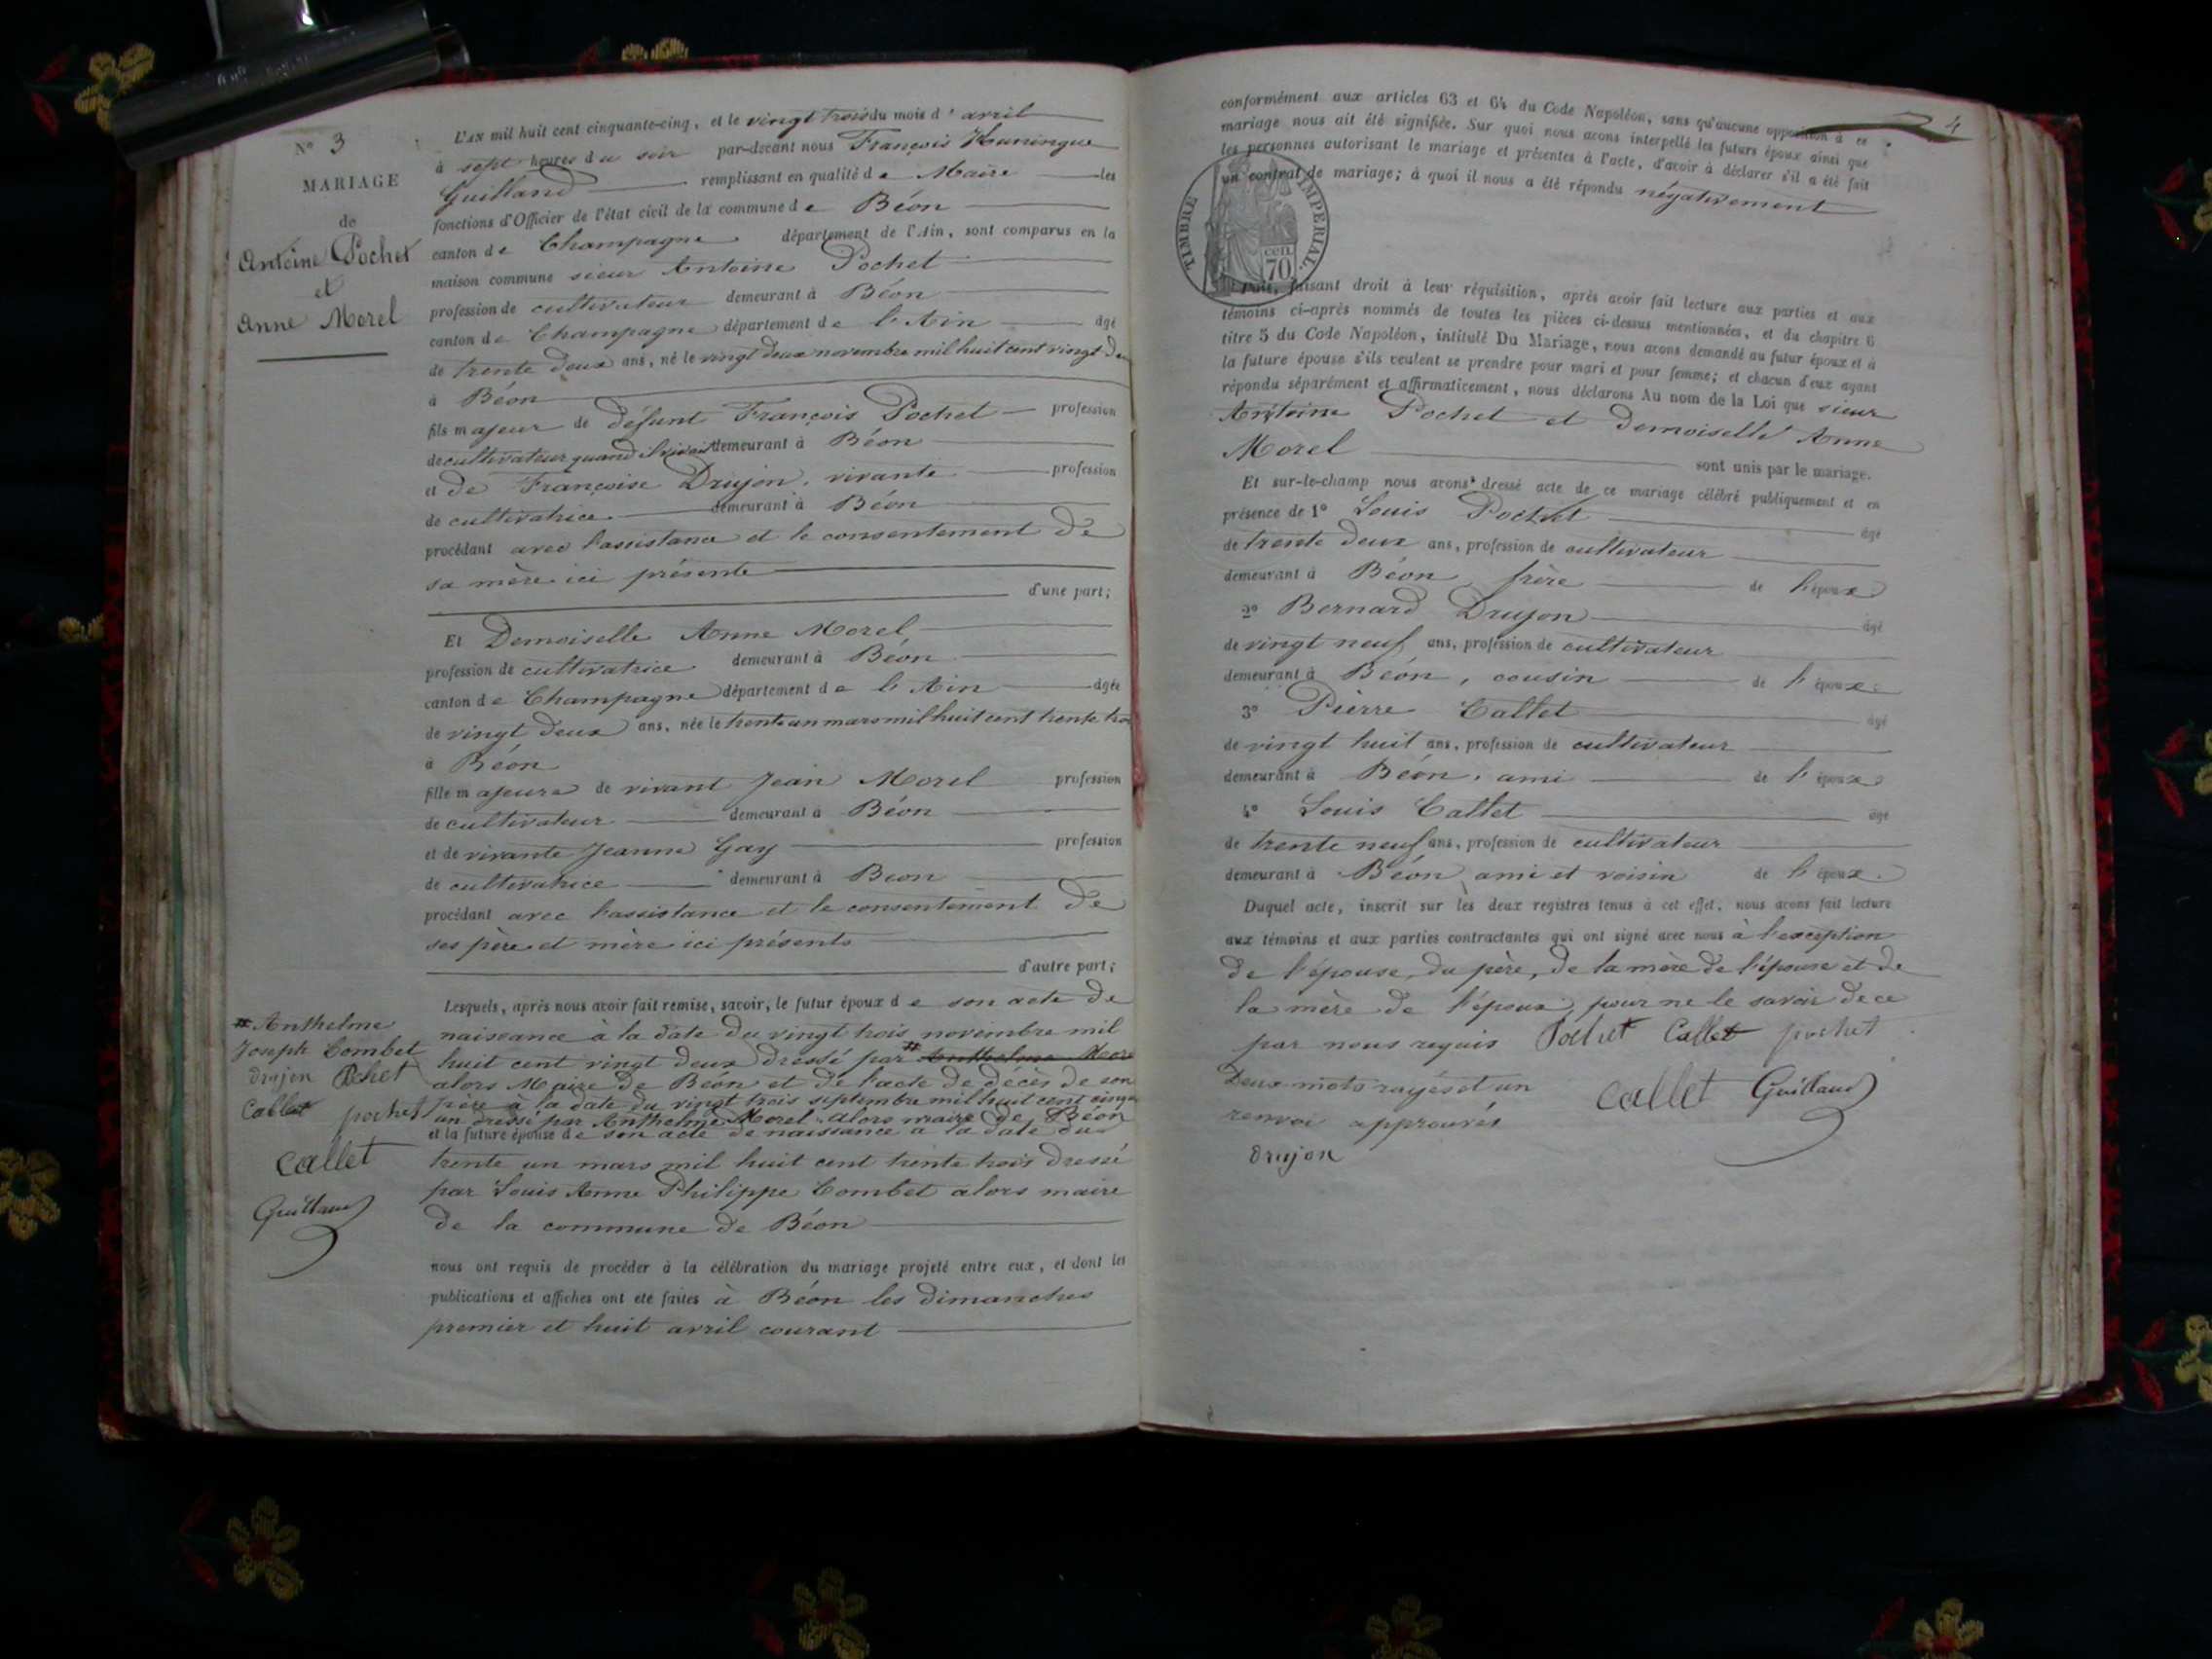 N° 3
MARIAGE
de
Antoine Pochet
et
Anne Morel
L'AN mil huit cent cinquante-cinq, et le vingt trois du mois d'avril
à sept heures du soir par-devant nous François Huningue
Guilland remplissant en qualité de Maire les
fonctions d'Officier de l'état civil de la commune de Béon
canton de Champagne département de l'Ain, sont comparus en la
maison commune sieur Antoine Pochet
profession de cultivateur demeurant à Béon
canton de Champagne département de l'Ain âgé
de trente deux ans, né le vingt deux novembre mil huit cent vingt deux
à Béon
fils majeur de défunt François Pochet profession
de cultivateur quand il vivait demeurant à Béon
et de Françoise Drujon, vivante profession
de cultivatrice demeurant à Béon
procédant avec l'assistance et le consentement de
sa mère ici présente
d'une part;
Et Demoiselle Anne Morel
profession de cultivatrice demeurant à Béon
canton de Champagne département de l'Ain âgée
de vingt deux ans, née le trente un mars mil huit cent trente trois
à Béon
fille majeure de vivant Jean Morel profession
de cultivateur demeurant à Béon
et de vivante Jeanne Gay profession
de cultivatrice demeurant à Béon
procédant avec l'assistance et le consentement de
ses père et mère ici présents
d'autre part;
Lesquels, après nous avoir fait remise, savoir, le futur époux de son acte de
naissance à la date du vingt trois novembre mil
huit cent vingt deux dressé par # Anthelme Morel
alors Maire de Béon et de l'acte de décès de son
père à la date du vingt trois septembre mil huit cent cinquante
un dressé par Anthelme Morel alors maire de Béon
et la future épouse de son acte de naissance à la date du
trente un mars mil huit cent trente trois dressé
par Louis Anne Philippe Combet alors maire
de la commune de Béon
nous ont requis de procéder à la célébration du mariage projeté entre eux, et dont les
publications et affiches ont été faites à Béon les dimanches
premier et huit avril courant
# Anthelme
Joseph Combet
drujon Pochet
Callet pochet
Callet
Guilland
4
conformément aux articles 63 et 64 du Code Napoléon, sans qu'aucune opposition à ce
mariage nous ait été signifiée. Sur quoi nous avons interpellé les futurs époux ainsi que
les personnes autorisant le mariage et présentes à l'acte, d'avoir à déclarer s'il a été fait
un contrat de mariage; à quoi il nous a été répondu négativement
TIMBRE IMPERIAL.
cen.
70
Puis, faisant droit à leur réquisition, après avoir fait lecture aux parties et aux
témoins ci-après nommés de toutes les pièces ci-dessus mentionnées, et du chapitre 6
titre 5 du Code Napoléon, intitulé Du Mariage, nous avons demandé au futur époux et à
la future épouse s'ils veulent se prendre pour mari et pour femme; et chacun d'eux ayant
répondu séparément et affirmativement, nous déclarons Au nom de la Loi que sieur
Antoine Pochet et Demoiselle Anne
Morel sont unis par le mariage.
Et sur-le-champ nous avons dressé acte de ce mariage célébré publiquement et en
présence de 1° Louis Pochet âgé
de trente deux ans, profession de cultivateur
demeurant à Béon, frère de l'époux
2° Bernard Drujon âgé
de vingt neuf ans, profession de cultivateur
demeurant à Béon, cousin de l'époux
3° Pierre Callet âgé
de vingt huit ans, profession de cultivateur
demeurant à Béon, ami de l'époux
4° Louis Callet âgé
de trente neuf ans, profession de cultivateur
demeurant à Béon ami et voisin de l'époux.
Duquel acte, inscrit sur les deux registres tenus à cet effet, nous avons fait lecture
aux témoins et aux parties contractantes qui ont signé avec nous à l'exception
de l'épouse, du père, de la mère de l'épouse et de
la mère de l'époux, pour ne le savoir de ce
par nous requis Pochet Callet pochet
Deux mots rayés et un
renvoi approuvés
Callet Guilland
drujon